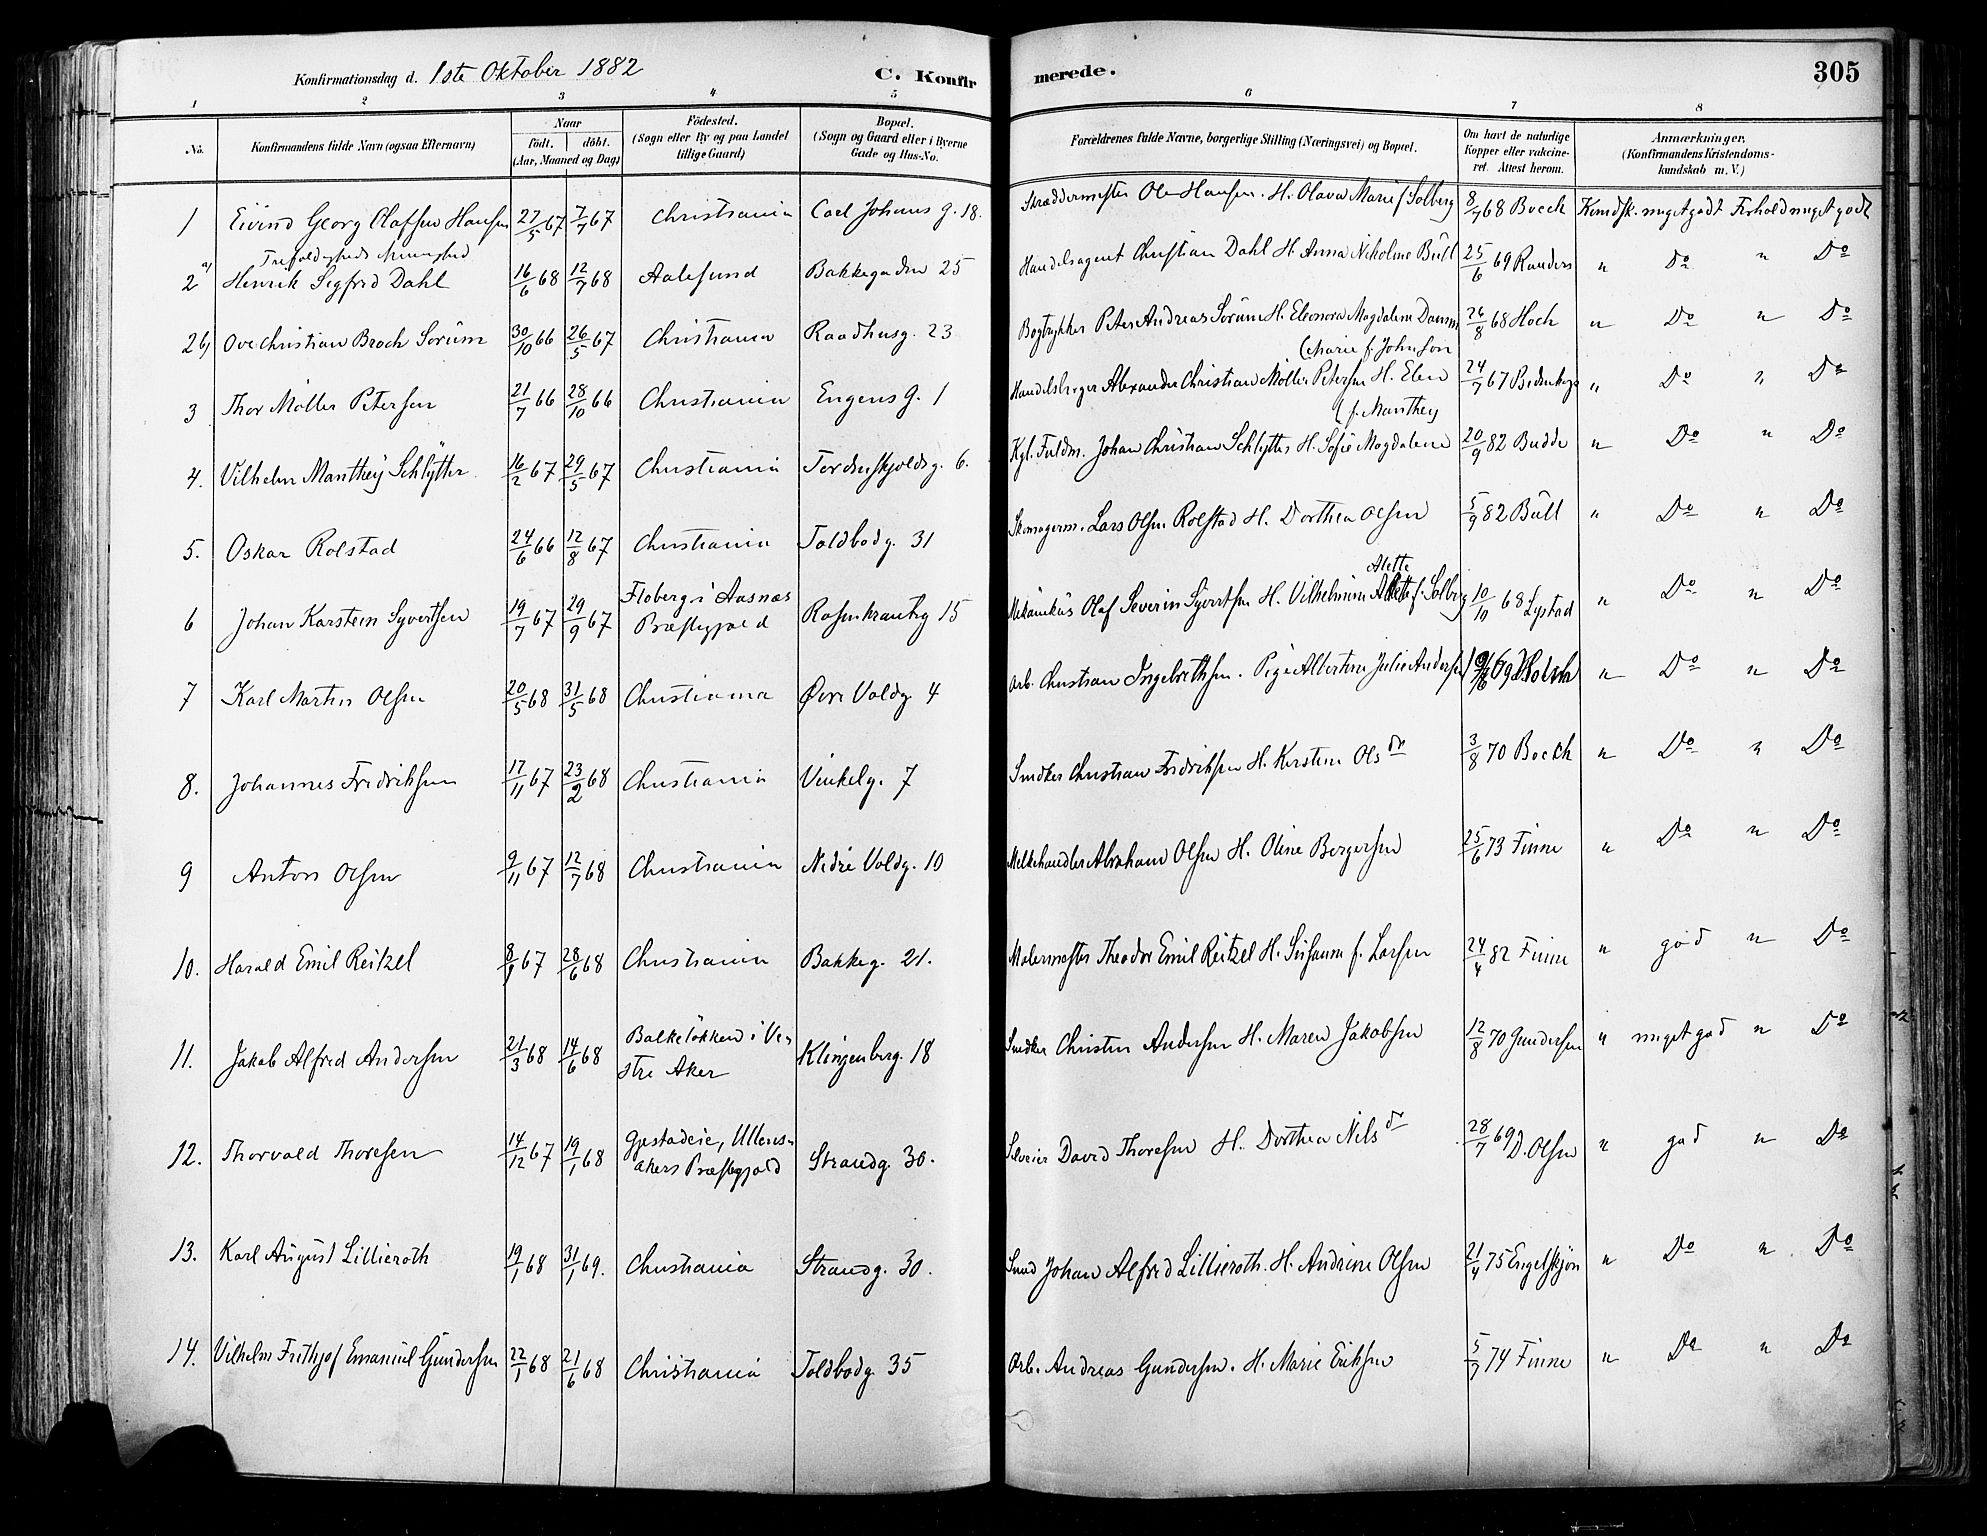 Konfirmationsdag d. 1ste Oktober 1882
C. Konfirmerede.
305
1 2 3 4 5 6 7 8
No.
Konfirmandens fulde Navn (ogsaa Efternavn)
Naar
født. døbt.
(Aar, Maaned og Dag)
Fødested.
(Sogn eller By og paa Landet
tillige Gaard)
Bopæl.
(Sogn og Gaard eller i Byerne
Gade og Hus-No.
Forældrenes fulde Navne, borgerlige Stilling (Næringsvei) og Bopæl.
Om havt de naturlige
Kopper eller vakcine-
ret. Attest herom.
Anmærkninger,
(Konfirmandens Kristendoms-
kundskab m. V.)
1 Eivind Georg Olafsen Hansen 27/5 67 7/7 67 Christiania Carl Johans g. 18. Skræddermester Ole Hansen. H. Olava Marie f. Solberg 8/7 68 Boeck Kundsk. meget godt Forhold meget godt
Trefoldigheds Menighed
2 a) Henrik Sigfred Dahl 16/6 68 12/7 68 Aalesund Bakkegaden 25 Handelsagent Christian Dahl H. Anna Nikoline Bull 25/6 69 Randers " Do " Do
2 b) Ove Christian Broch Sørum 30/10 66 26/5 67 Christiania Raadhusg. 23 Bogtrykker Peter Andreas Sørum H. Eleonora Magdalena Damm 26/8 68 Hoch " Do " Do
(Marie f. Johnson
3 Thor Møller Petersen 21/7 66 28/10 66 Christiania Engens G. 1 Handelsborger Alexander Christian Møller Petersen H. Elen 24/7 67 " Do " Do
(f. Manthey
4. Vilhelm Manthey Schlytter 16/2 67 29/5 67 Christiania Tordenskjoldsg. 6. Kgl. Fuldm. Johan Christian Schlytter H. Sofie Magdalene 20/9 82 Budde " Do " Do
5. Oskar Rolstad 24/6 66 12/8 67 Christiania Toldbodg. 31 Skomagerm. Lars Olsen Rolstad H. Dorthea Olsen 5/9 82 Bull " Do " Do
Alette
6 Johan Karsten Syvertsen 19/7 67 29/9 67 Floberg i Aasnæs Præstegjæld Rosenkrantzg 15 Mekanikus Olaf Severin Syvertsen H. Vilhelmine f. Solberg 10/10 68 Lystad " Do " Do
7 Karl Martin Olsen 20/5 68 31/5 68 Christiania Øvre Voldg 4 Arb. Christian Ingebrethsen. Pige Albertine Julie Andersen " Do " Do
8. Johannes Fredriksen 17/11 67 23/2 68 Christiania Vinkelg. 7 Snedker Christian Fredriksen H. Kerstine Olsdr 3/8 70 Boeck " Do " Do
9 Anton Olsen 9/11 67 12/7 68 Christiania Nedre Voldg. 10 Melkehandler Abraham Olsen H. Oline Bergersen 25/6 73 Finne " Do " Do
10. Harald Emil Reitzel 8/9 67 28/6 68 Christiania Bakkeg. 21. Malermester Theodor Emil Reitzel H. Susanne f. Larsen 24/4 82 Finne " god " Do
11. Jakob Alfred Andersen 21/3 68 14/6 68 Balkeløkken i Vestre Aker Klingenberg. 18 Snedker Christen Andersen H. Maren Jakobsen 12/8 70 Gundersen " meget god " Do
12. Thorvald Thoresen 14/12 67 19/1 68 Gjestadeie, Ullensakers Præstegjæld Strandg. 30. David Thoresen H. Dorthea Nilsdr 28/7 69 D. Olsen " god " Do
13. Karl August Lillieroth 19/1 68 31/1 69. Christiania Strandg. 30. Smed Johan Alfred Lillieroth. H. Andrine Olsen 21/4 75 Engelskjøn " Do " Do
14. Vilhelm Frithjof Emanuel Gundersen 22/1 68 21/6 68 Christiania Toldbodg. 35 Arb. Andreas Gundersen. H. Marie Eriksen 5/7 74 Finne " Do " Do